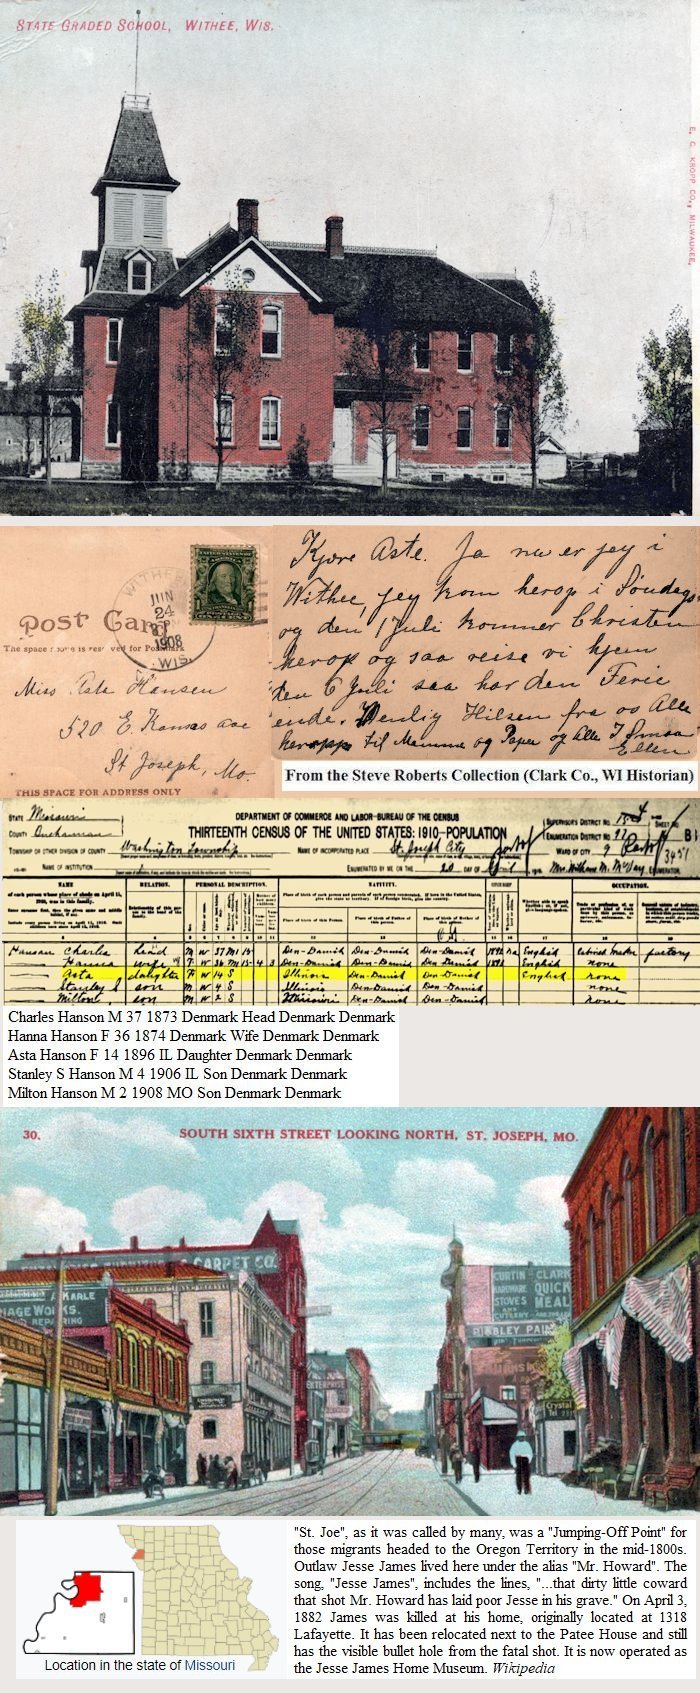 STATE GRADED SCHOOL, WITHEE, WIS.
E. C. KROPP CO., MILWAUKEE.
WITHEE
JUN
24
1908
WIS.
Post Card
The space above is reserved for Postmark
Miss Asta Hansen
520 E. Kansas ave
St Joseph, Mo.
THIS SPACE FOR ADDRESS ONLY
Kjære Aste. Ja nu er jeg i
Withee, jeg kom herop i Søndags
og den 1 Juli kommer Christen
herop og saa reise vi hjem
den 6 Juli saa har den Ferie
ende. Venlig Hilsen fra os Alle
heroppe til Mamma og Papa og Alle
Ellen
From the Steve Roberts Collection (Clark Co., WI Historian)
STATE Missouri
COUNTY Buchanan
DEPARTMENT OF COMMERCE AND LABOR-BUREAU OF THE CENSUS
THIRTEENTH CENSUS OF THE UNITED STATES: 1910-POPULATION
TOWNSHIP OR OTHER DIVISION OF COUNTY Washington Township
NAME OF INCORPORATED PLACE St. Joseph City
NAME OF INSTITUTION
ENUMERATED BY ME ON THE 20 DAY OF April
SUPERVISOR'S DISTRICT NO.
ENUMERATION DISTRICT NO. 92
SHEET NO.
WARD OF CITY 9
B
ENUMERATOR
NAME RELATION. PERSONAL DESCRIPTION. NATIVITY. OCCUPATION.
Place of birth of this Person. Place of birth of Father of this person. Place of birth of Mother of this person.
Hansen Charles head M W 37 M1 15 Den-Danish Den-Danish Den-Danish 1892 na English Cabinet maker factory
Hanna wife F W 36 M1 15 4 3 Den-Danish Den-Danish Den-Danish 1892 English none
Asta daughter F W 14 S Illinois Den-Danish Den-Danish English none
Stanley S son M W 4 S Illinois Den-Danish Den-Danish none
Milton son M W 2 S Missouri Den-Danish Den-Danish none
Charles Hanson M 37 1873 Denmark Head Denmark Denmark
Hanna Hanson F 36 1874 Denmark Wife Denmark Denmark
Asta Hanson F 14 1896 IL Daughter Denmark Denmark
Stanley S Hanson M 4 1906 IL Son Denmark Denmark
Milton Hanson M 2 1908 MO Son Denmark Denmark
30. SOUTH SIXTH STREET LOOKING NORTH, ST. JOSEPH, MO.
CARPET CO.
KARLE
AGE WORKS.
REPAIRING
ENTERPRISE
CURTIN CLARK
HARDWARE QUICK
STOVES MEAL
AND
CUTLERY
Crystal
Tel
"St. Joe", as it was called by many, was a "Jumping-Off Point" for
those migrants headed to the Oregon Territory in the mid-1800s.
Outlaw Jesse James lived here under the alias "Mr. Howard". The
song, "Jesse James", includes the lines, "...that dirty little coward
that shot Mr. Howard has laid poor Jesse in his grave." On April 3,
1882 James was killed at his home, originally located at 1318
Lafayette. It has been relocated next to the Patee House and still
has the visible bullet hole from the fatal shot. It is now operated as
the Jesse James Home Museum. Wikipedia
Location in the state of Missouri